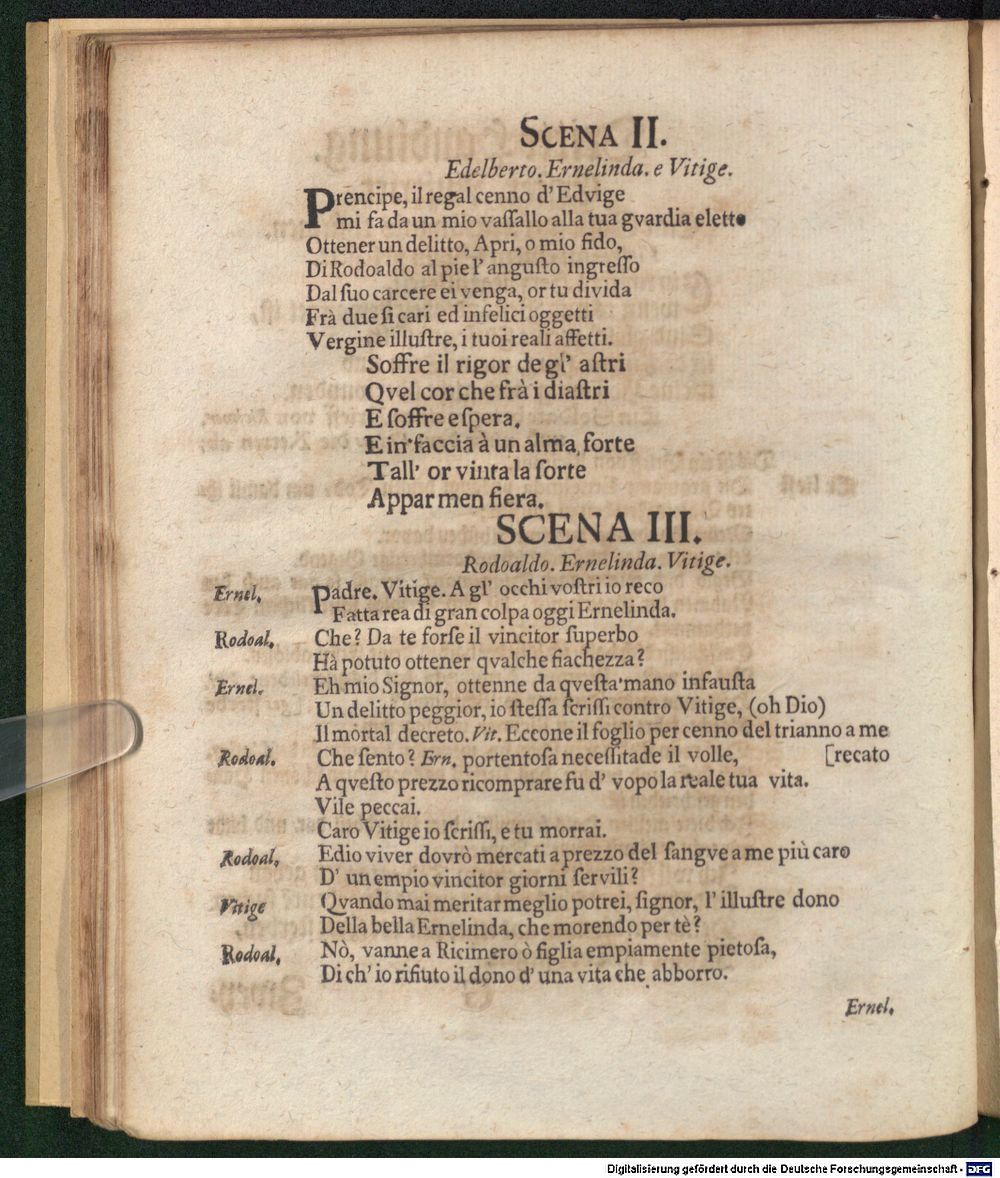 SCENA II.
Edelberto. Ernelinda. e Vitige.
Prencipe, il regal cenno d' Edvige
mi fa da un mio vaſſallo alla tua gvardia eletto
Ottener un delitto, Apri, o mio fido,
Di Rodoaldo al pie l' anguſto ingreſſo
Dal ſuo carcere ei venga, or tu divida
Frà due ſi cari ed infelici oggetti
Vergine illuſtre, i tuoi reali affetti.
Soffre il rigor de gl' aſtri
Qvel cor che frà i diaſtri
E ſoffre e ſpera.
E in faccia à un alma forte
Tall' or vinta la ſorte
Appar men fiera.
SCENA III.
Rodoaldo. Ernelinda. Vitige.
Ernel. Padre. Vitige. A gl' occhi voſtri io reco
Fatta rea di gran colpa oggi Ernelinda.
Rodoal. Che? Da te forſe il vincitor ſuperbo
Hà potuto ottener qvalche fiachezza?
Ernel. Eh mio Signor, ottenne da qveſta mano infauſta
Un delitto peggior, io ſteſſa ſcriſſi contro Vitige, (oh Dio)
Il mortal decreto. Vit. Eccone il foglio per cenno del trianno a me
Rodoal. Che ſento? Ern. portentoſa neceſſitade il volle, [recato
A qveſto prezzo ricomprare fu d' vopo la reale tua vita.
Vile peccai.
Caro Vitige io ſcriſſi, e tu morrai.
Rodoal. Edio viver dovrò mercati a prezzo del ſangve a me più caro
D' un empio vincitor giorni ſervili?
Vitige Qvando mai meritar meglio potrei, ſignor, l' illuſtre dono
Della bella Ernelinda, che morendo per tè?
Rodoal. Nò, vanne a Ricimero ò figlia empiamente pietoſa,
Di ch' io rifiuto il dono d' una vita che abborro.
Ernel.
Digitalisierung gefördert durch die Deutsche Forschungsgemeinschaft - DFG